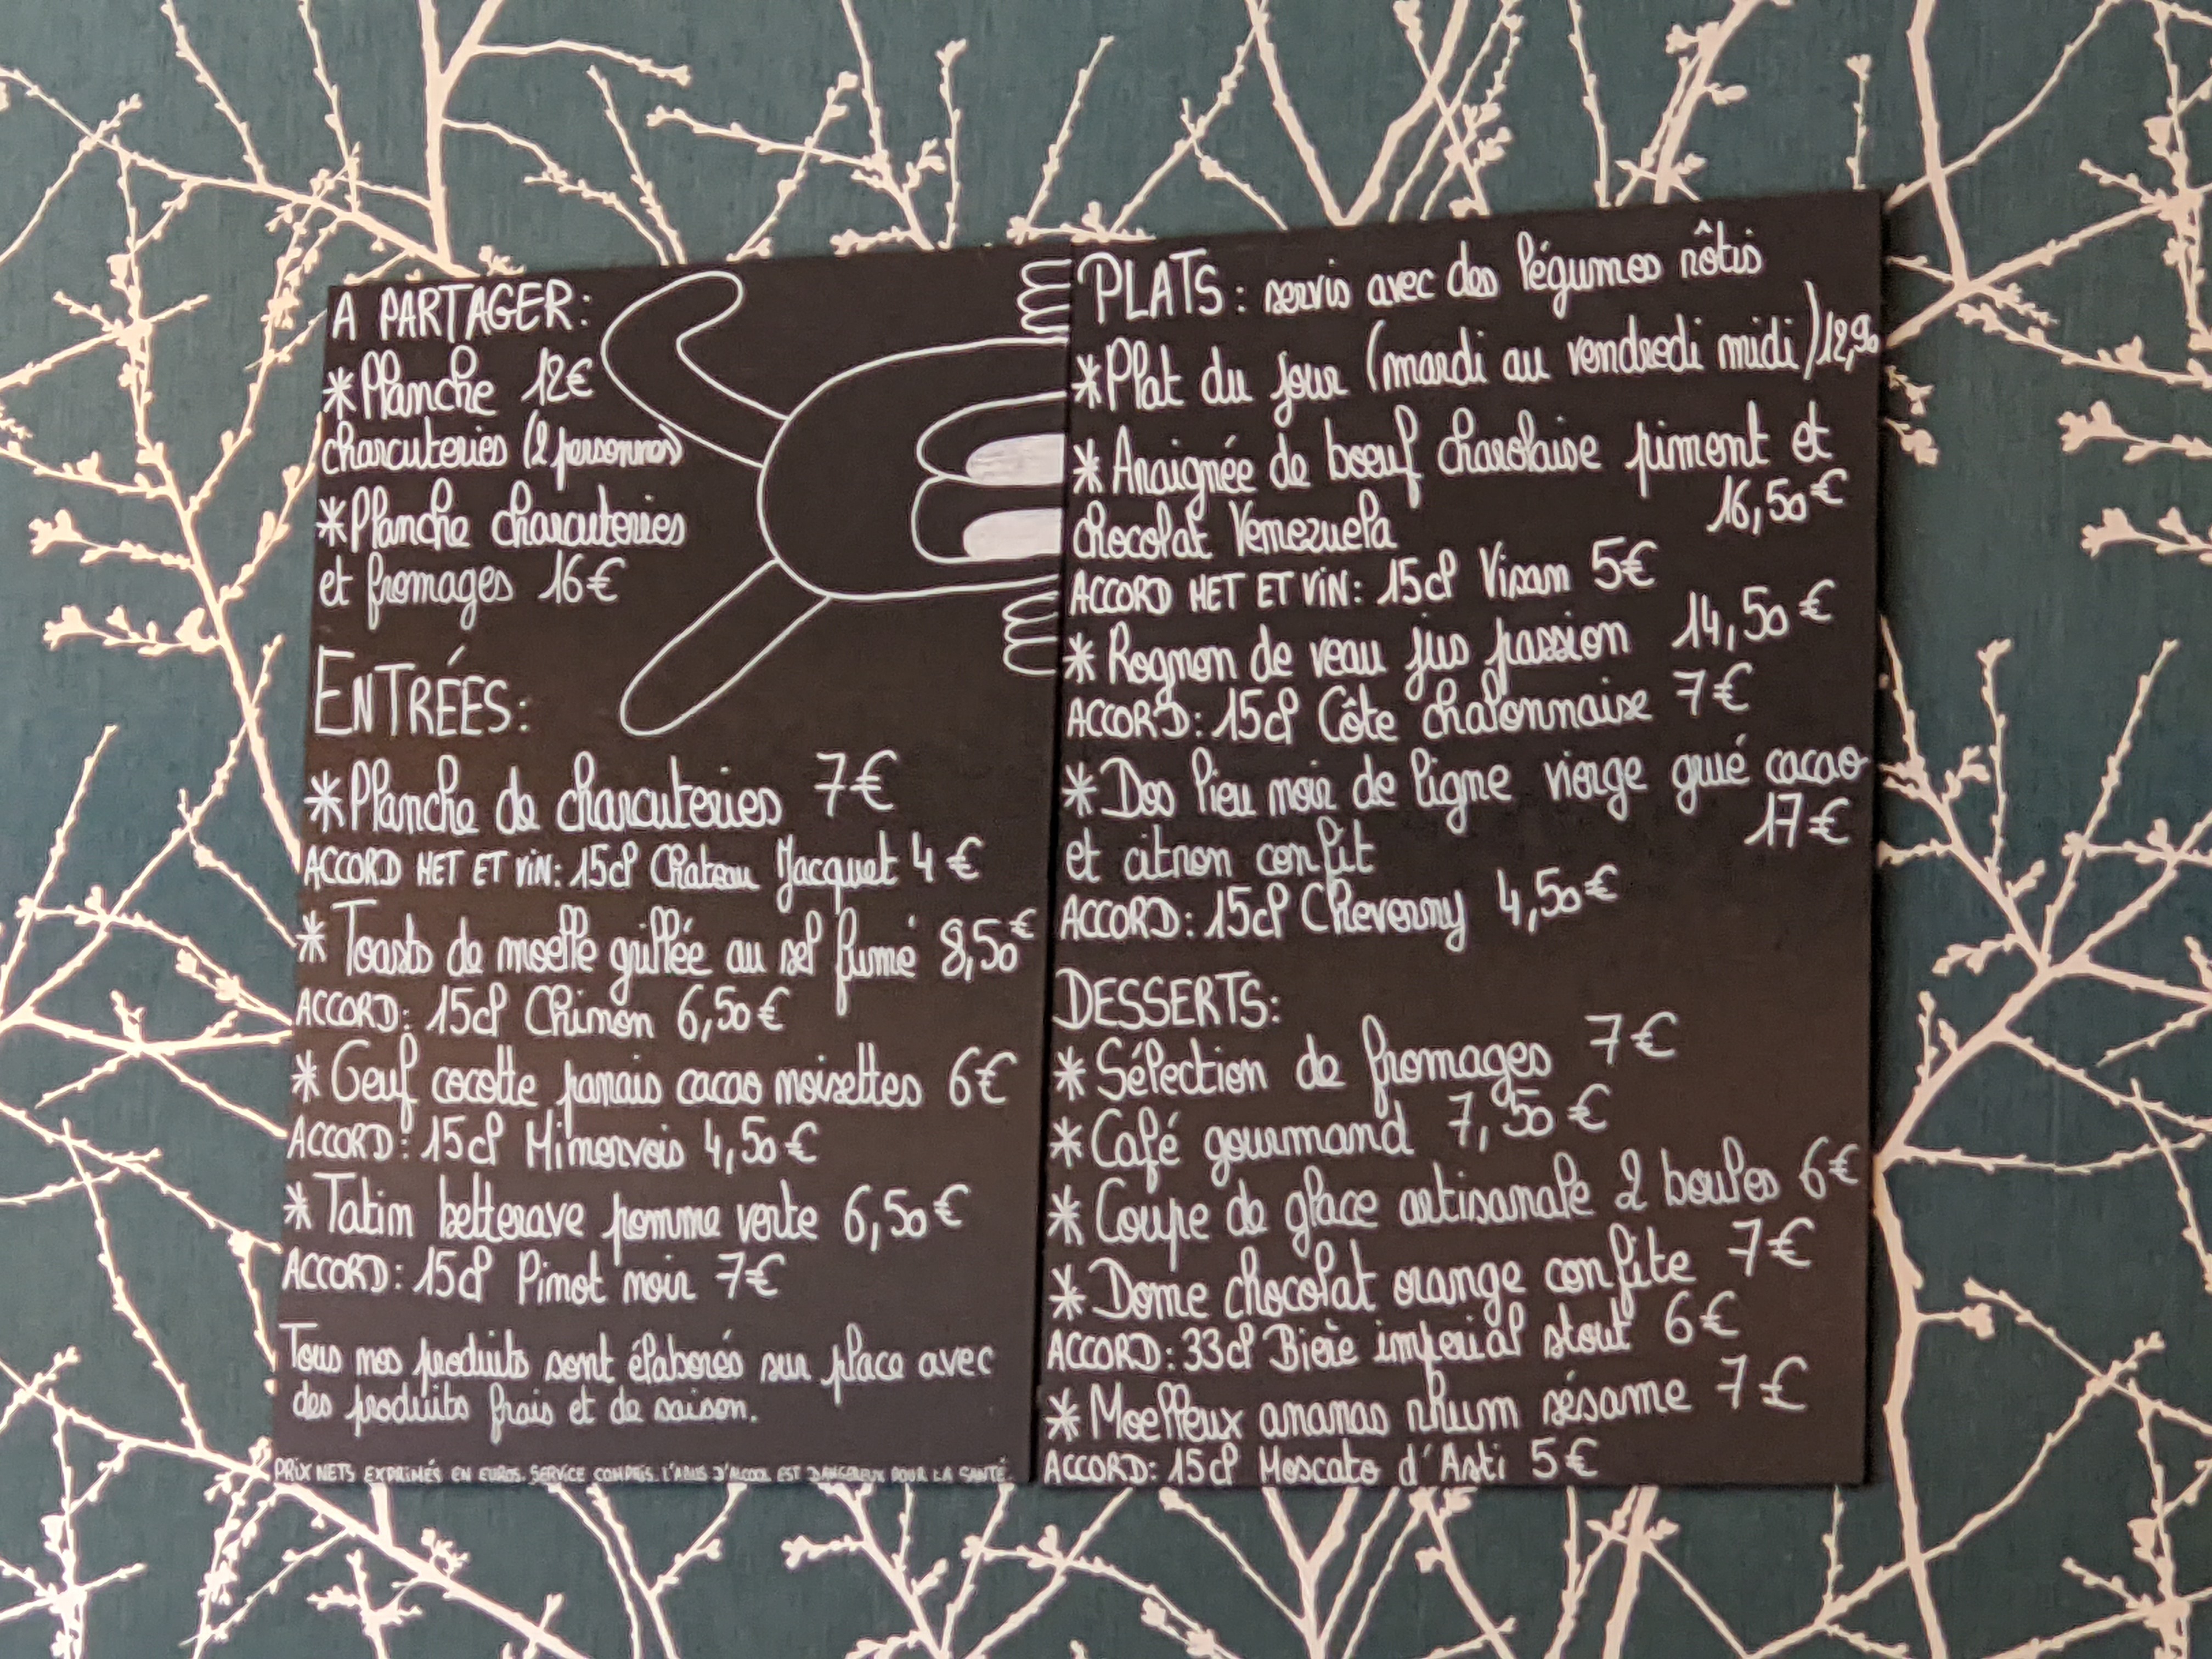 A PARTAGER:
*Planche 12€
charcuteries (2 personnes)
*Planche charcuteries
et fromages 16€
ENTRÉES:
*Planche de charcuteries 7€
ACCORD MET ET VIN: 15cl Chateau Jacquet 4€
*Toasts de moelle grillée au sel fumé 8,50€
ACCORD: 15cl Chinon 6,50€
*Oeuf cocotte panais cacao noisettes 6€
ACCORD: 15cl Minervois 4,50€
*Tatin betterave pomme verte 6,50€
ACCORD: 15cl Pinot noir 7€
Tous nos produits sont élaborés sur place avec
des produits frais et de saison.
PRIX NETS EXPRIMÉS EN EUROS. SERVICE COMPRIS. L'ABUS D'ALCOOL EST DANGEREUX POUR LA SANTÉ.
PLATS: servis avec des légumes rôtis
*Plat du jour (mardi au vendredi midi) 12,90
*Araignée de boeuf charolaise piment et
chocolat Venezuela 16,50€
ACCORD MET ET VIN: 15cl Visan 5€
*Rognon de veau jus passion 14,50€
ACCORD: 15cl Côte chalonnaise 7€
*Dos lieu noir de ligne vierge grué cacao
et citron confit 17€
ACCORD: 15cl Cheverny 4,50€
DESSERTS:
*Sélection de fromages 7€
*Café gourmand 7,50€
*Coupe de glace artisanale 2 boules 6€
*Dome chocolat orange confite 7€
ACCORD: 33cl Bière imperial stout 6€
*Moelleux ananas rhum sésame 7€
ACCORD: 15cl Moscato d'Asti 5€